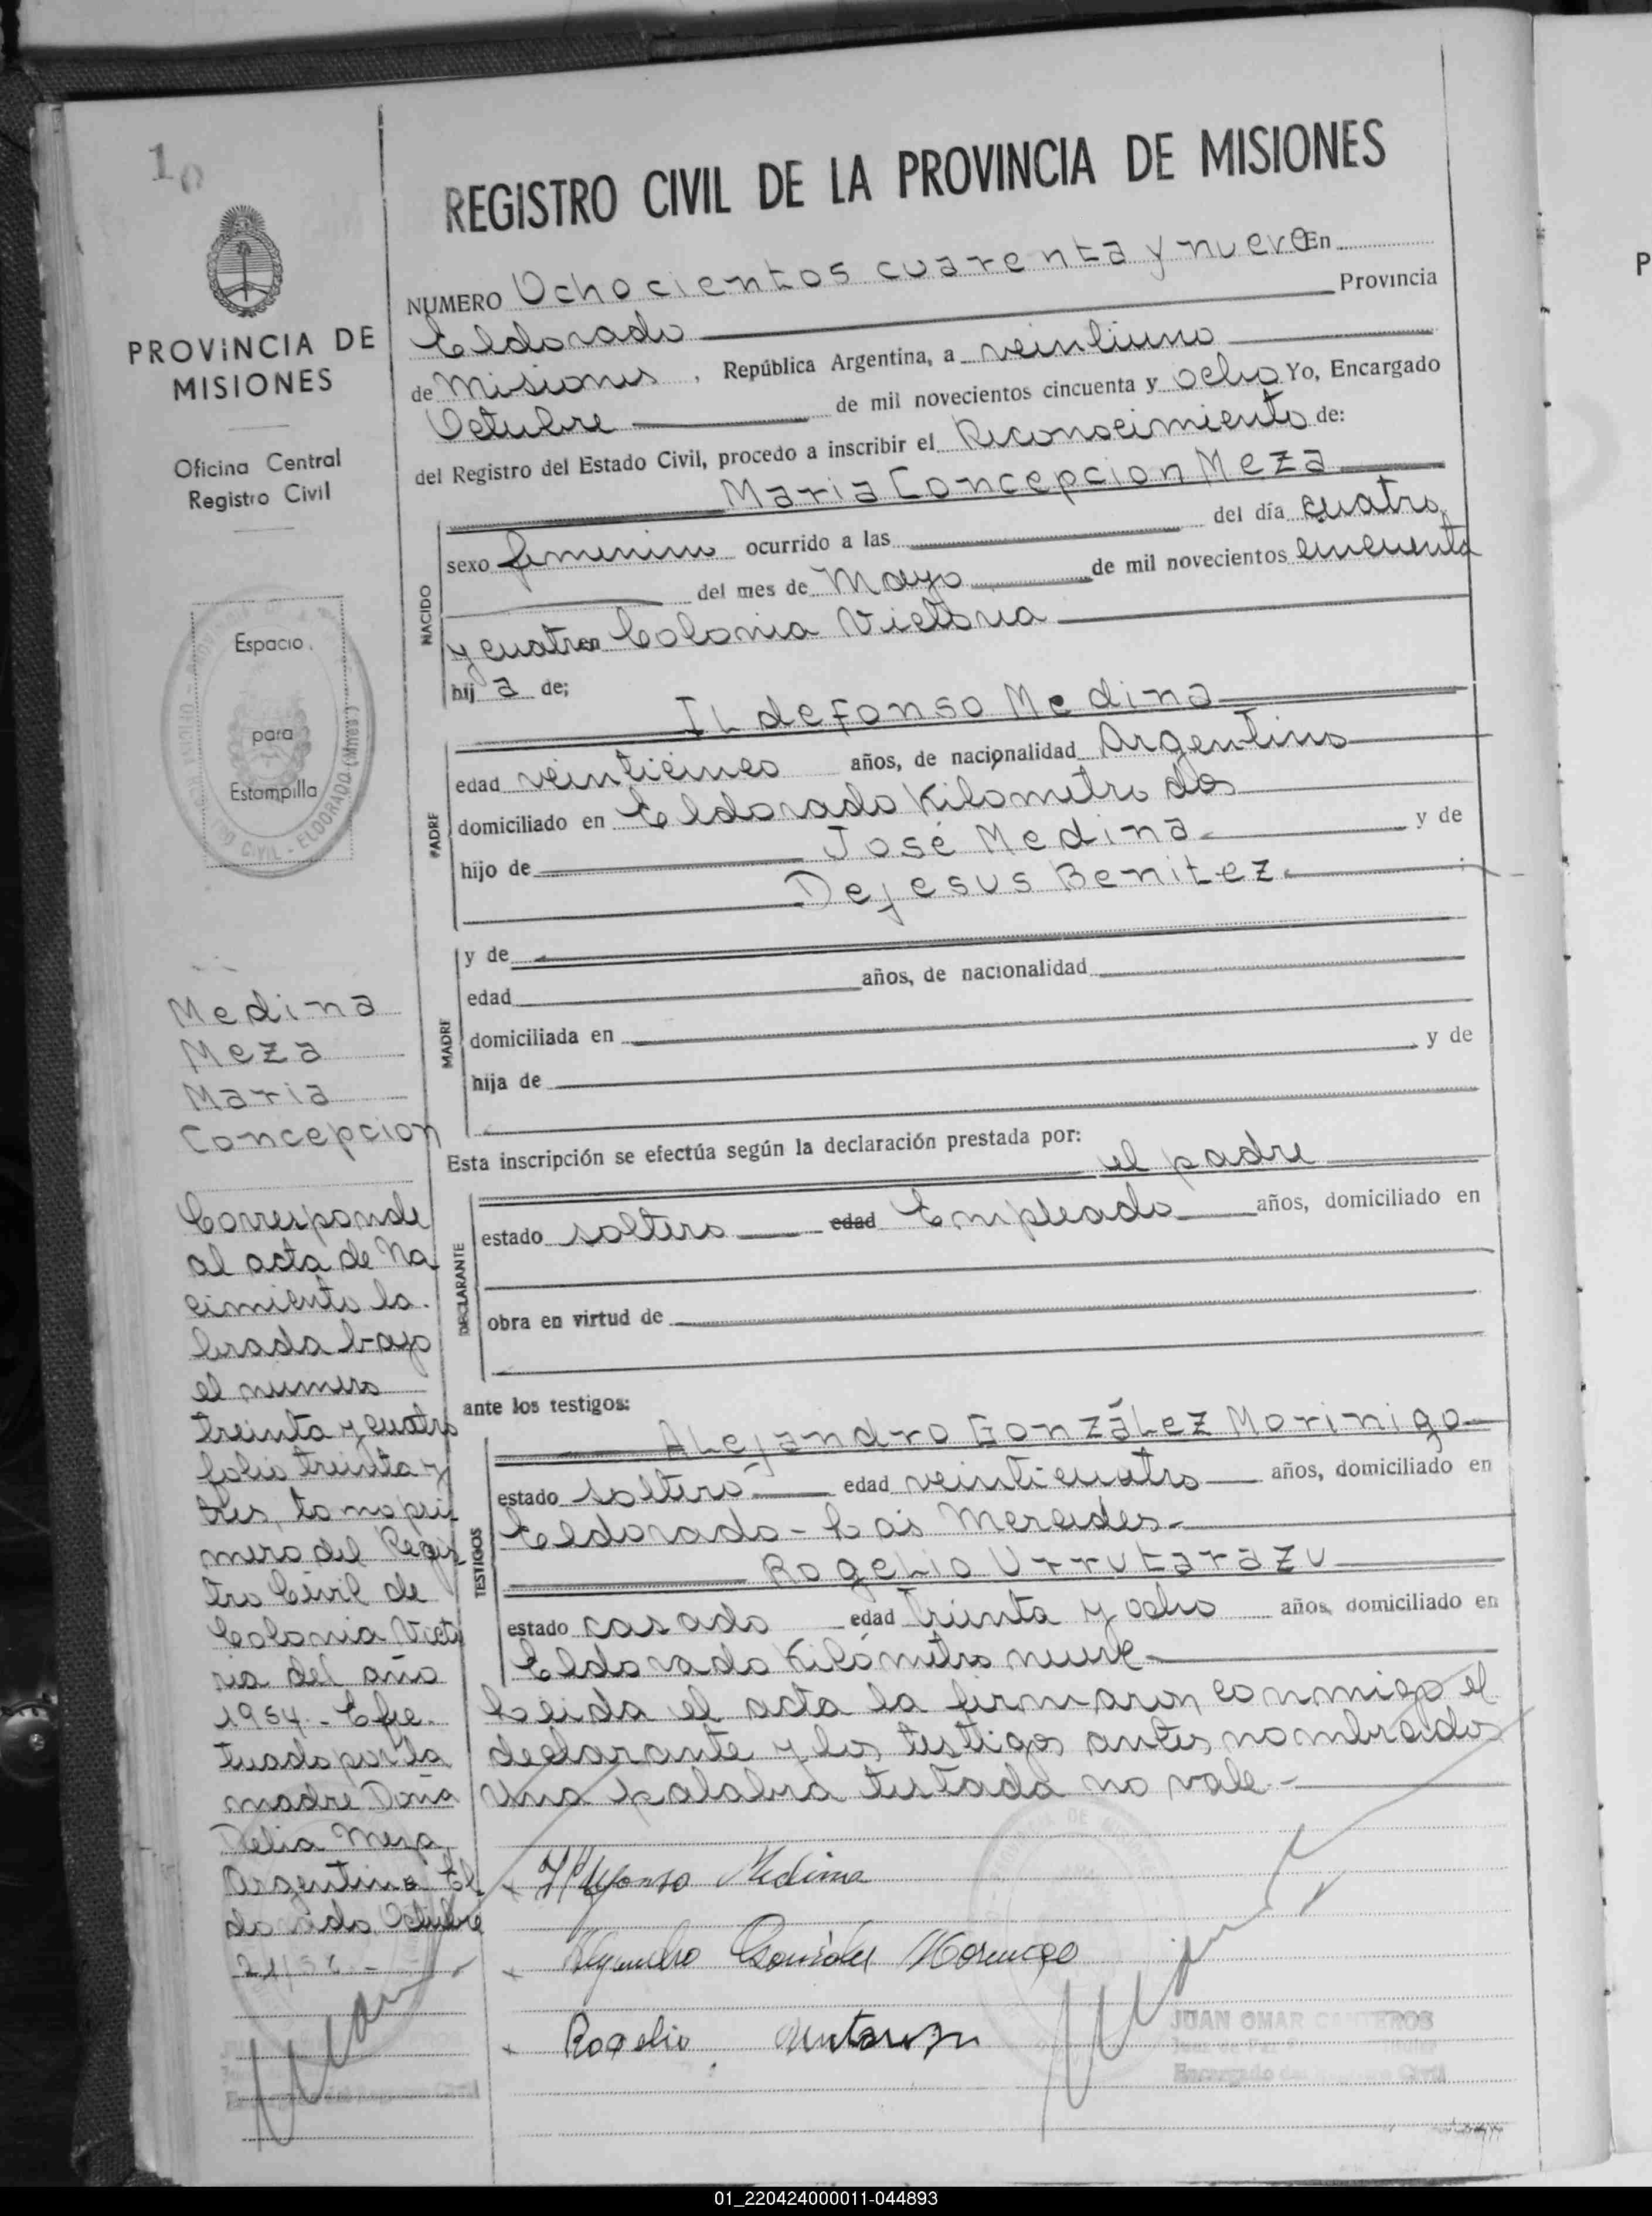 10
REGISTRO CIVIL DE LA PROVINCIA DE MISIONES
PROVINCIA DE
MISIONES
Oficina Central
Registro Civil
Espacio
para
Estampilla
CIVIL - ELDORADO (Mnes)
NUMERO Ochocientos cuarenta y nueve En
Eldorado Provincia
de Misiones, República Argentina, a veintiuno
Octubre de mil novecientos cincuenta y ocho Yo, Encargado
del Registro del Estado Civil, procedo a inscribir el Reconocimiento de:
Maria Concepcion Meza
NACIDO
sexo femenino ocurrido a las del día cuatro
del mes de Mayo de mil novecientos cincuenta
y cuatro en Colonia Victoria
hij a de;
Ildefonso Medina
PADRE
edad veinticinco años, de nacionalidad Argentino
domiciliado en Eldorado Kilometro dos
hijo de José Medina y de
Dejesus Benitez
MADRE
y de
edad años, de nacionalidad
domiciliada en
hija de y de
Esta inscripción se efectúa según la declaración prestada por:
el padre
DECLARANTE
estado soltero edad Empleado años, domiciliado en
obra en virtud de
ante los testigos:
Alejandro González Morinigo
TESTIGOS
estado soltero edad veinticuatro años, domiciliado en
Eldorado - Las Mercedes.-
Rogelio Urrutarazu
estado casado edad Treinta y ocho años, domiciliado en
Eldorado Kilómetro nueve
Leida el acta la firmaron conmigo el
declarante y los testigos antes nombrados
Una palabra testada no vale.-
Ildefonso Medina
Alejandro González Morinigo
Rogelio Urrutarazu
JUAN OMAR CANTEROS
Encargado del Registro Civil
Medina
Meza
Maria
Concepcion
Corresponde
al acta de Na
cimiento la.
brada bajo
el numero
treinta y cuatro
folio treinta y
tres, tomo pri
mero del Regis
tro Civil de
Colonia Victo
ria del año
1954.- Efec.
tuado por la
madre Doña
Delia Meza
Argentina El
dorado, Octubre
01_220424000011-044893